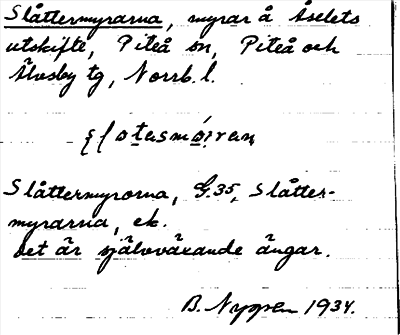 Slåttermyrarna, myrar å Åselets
utskifte, Piteå sn, Piteå och
Älvsby tg, Norrb. l.
Slåttermyrorna, G.35, Slåtter-
myrarna, ek.
det är självväxande ängar.
B. Nyman 1934.